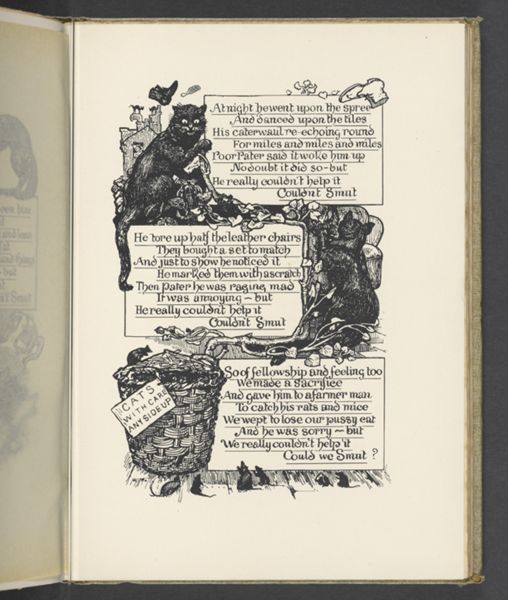 At night he went upon the spree
And danced upon the tiles
His caterwaul re-echoing round
For miles and miles and miles
Poor Pater said it woke him up
No doubt it did so - but
He really couldn't help it
Couldn't Smut
He tore up half the leather chairs
They bought a set to match
And just to show he noticed it
He marked them with a scratch
Then Pater he was raging mad
It was annoying ~ but
He really couldn't help it
Couldn't Smut
So of fellowship and feeling too
We made a sacrifice
And gave him to a farmer man
To catch his rats and mice
We wept to lose our pussy cat
And he was sorry ~ but
We really couldn't help it
Could we Smut?
CATS
WITH CARE
ANY SIDE UP